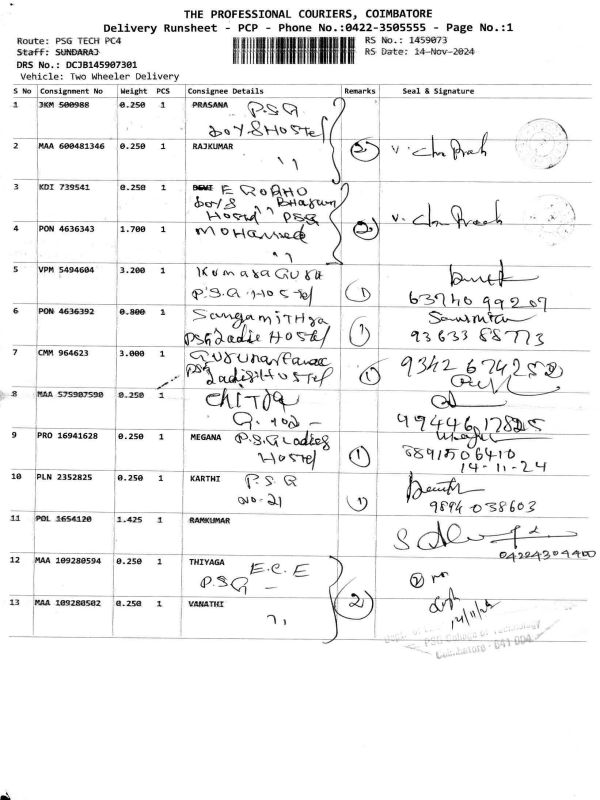 THE PROFESSIONAL COURIERS, COIMBATORE
Delivery Runsheet - PCP - Phone No.:0422-3505555 - Page No.:1
Route: PSG TECH PC4
RS No.: 1459073
Staff: SUNDARAJ
RS Date: 14-Nov-2024
DRS No.: DCJB145907301
Vehicle: Two Wheeler Delivery
S No Consignment No Weight PCS Consignee Details Remarks Seal & Signature
1 JKM 500988 0.250 1 PRASANA P.S.G
boys Hostel
2 MAA 600481346 0.250 1 RAJKUMAR 2
,,
3 KDI 739541 0.250 1
boys
Hostel PSG
4 PON 4636343 1.700 1 Mohammed 2
,,
5 VPM 5494604 3.200 1 Kumaraguru
P.S.G. Hostel 1 63740 99207
6 PON 4636392 0.800 1 Sangamithra
PSG Ladie Hostel 1 93633 88773
7 CMM 964623 3.000 1
PSG Ladies Hostel 1
8 MAA 575907590 0.250 1 Chitra
G. 102 -
9 PRO 16941628 0.250 1 MEGANA P.S.G Ladies
Hostel 1 8891506410
14-11-24
10 PLN 2352825 0.250 1 KARTHI P.S.G
No-21 1 9894038603
11 POL 1654120 1.425 1 RAMKUMAR
04224304400
12 MAA 109280594 0.250 1 THIYAGA E.C.E
P.S.G - 2
13 MAA 109280502 0.250 1 VANATHI 2
,, 14/11/24
PSG College of Technology
Coimbatore - 641 004.